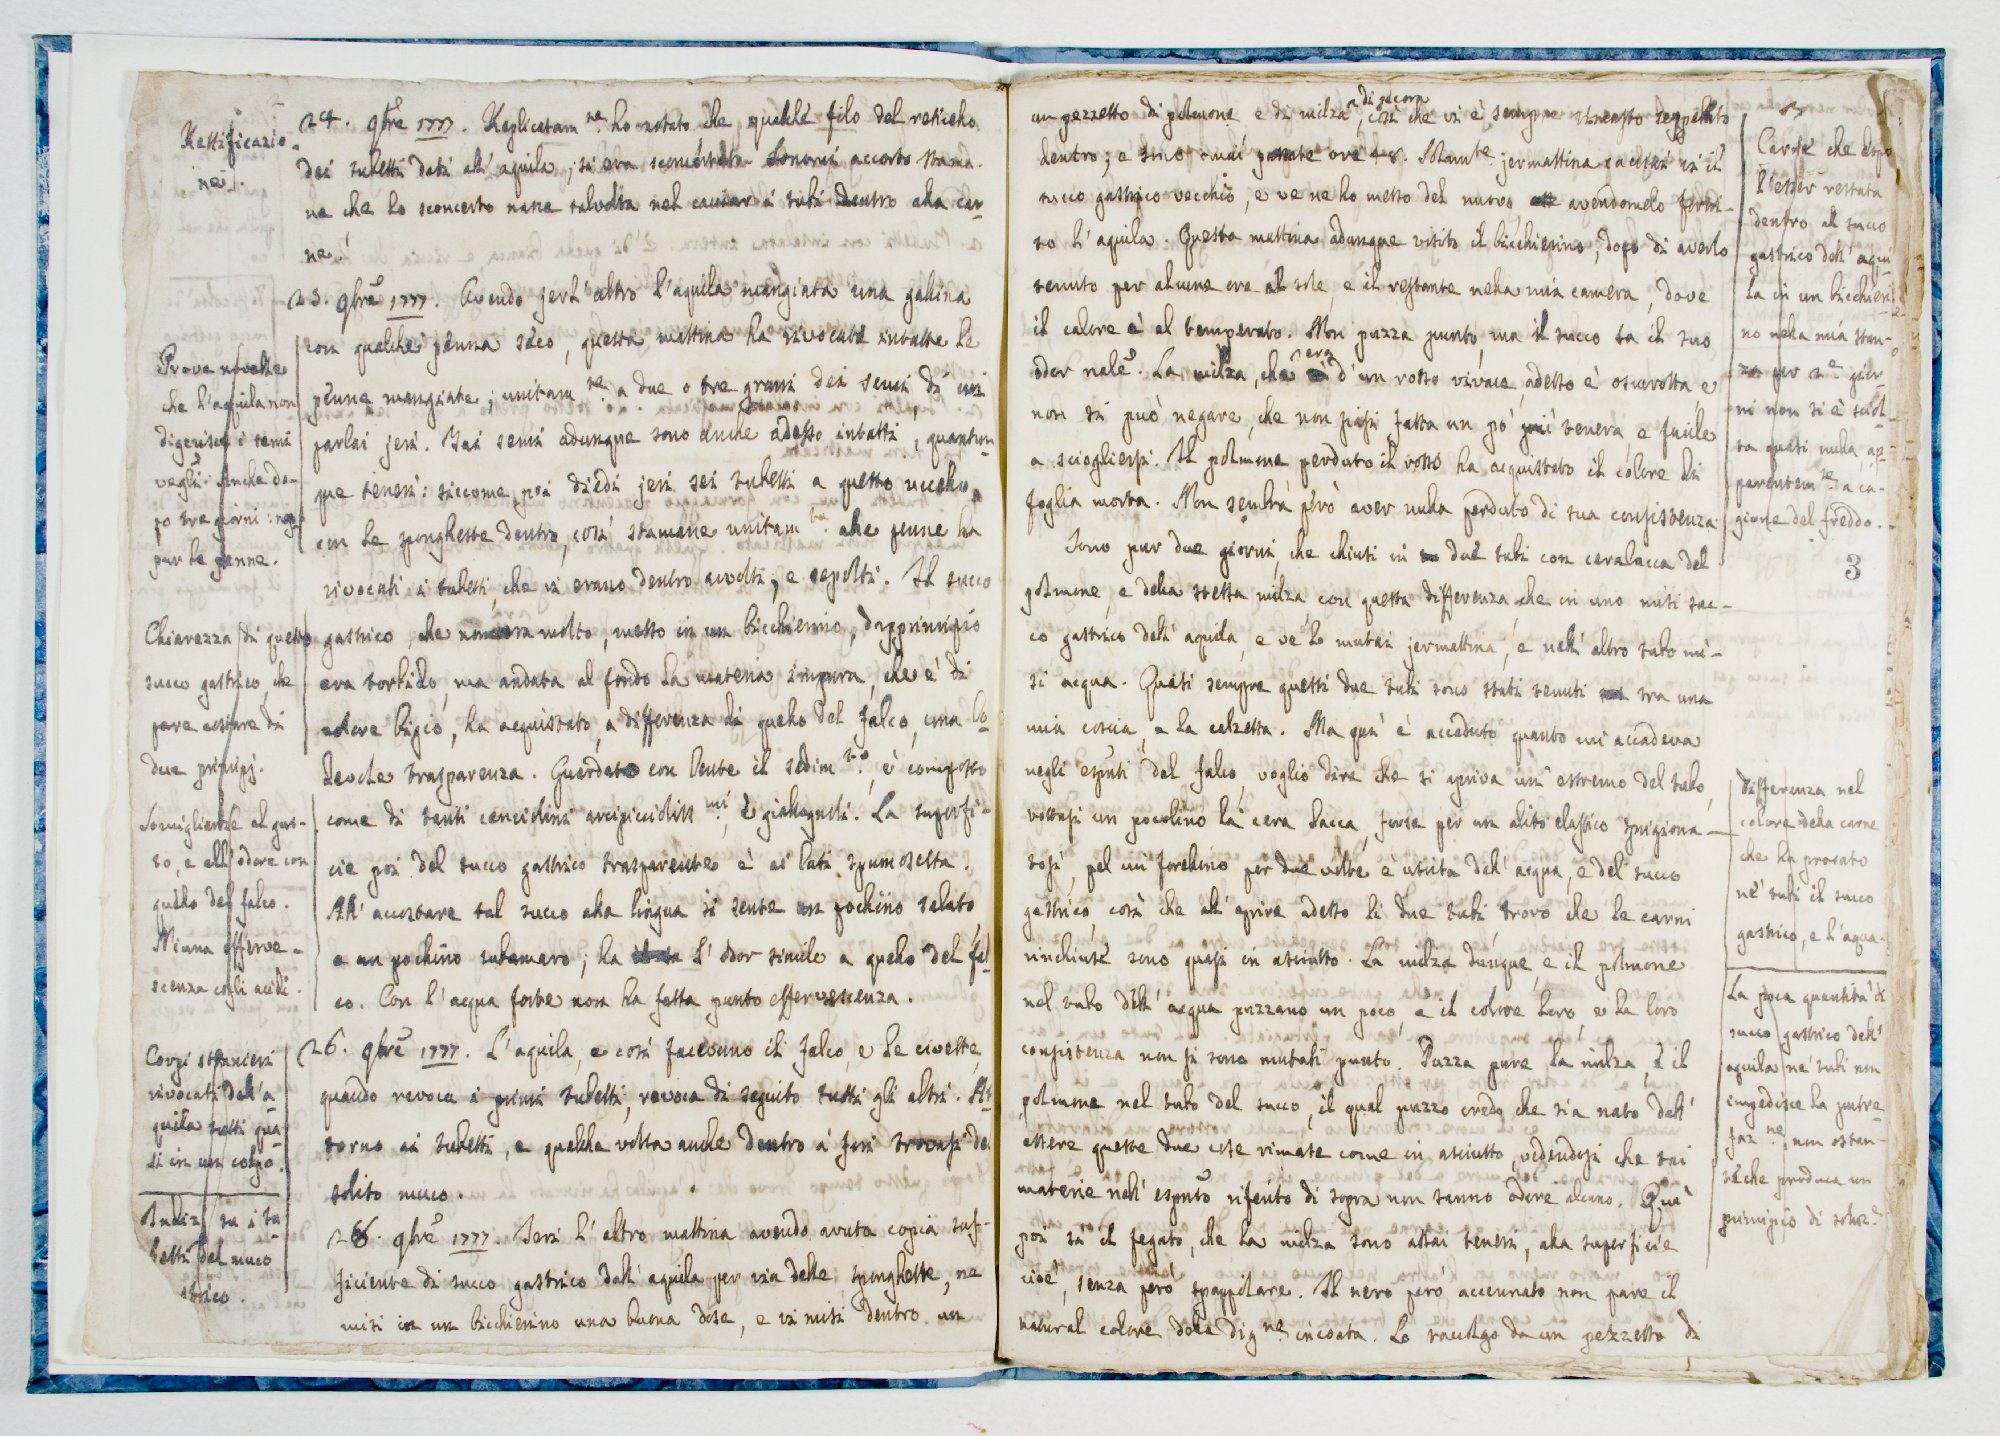 Rettificazio-
ne.
24. 9bre 1777. Replicatam.ne ho notato che qualche filo del reticello
dei tubetti dati all'aquila, si era sconcertato. Sonomi accorto stama-
ne che lo sconcerto nasce talvolta nel cacciar i tubi dentro alla car-
ne.
25. 9bre 1777. Avendo jerl'altro l'aquila mangiata una gallina
con qualche penna seco, questa mattina ha rivocate intatte le
penne mangiate, unitam.te a due o tre grani dei semi, di cui
parlai jeri. Tai semi adunque sono anche adesso intatti, quantun-
que teneri: siccome poi diedi jeri sei tubetti a questo uccello
con le spunghette dentro, così stamane unitam.te alle penne ha
rivocati i tubetti, che vi erano dentro avvolti, e sepolti. Il succo
gastrico, che non era molto, messo in un bicchierino, dapprincipio
era torbido, ma andata al fondo la materia impura, che è di
colore bigio, ha acquistato, a differenza di quello del falco, una lo-
devole trasparenza. Guardato con lente il sedim.to, è composto
come di tanti cenciolini arcipicciolissimi, e giallognoli. La superfi-
cie poi del succo gastrico trasparente è ai lati spumosetta.
All'accostare tal succo alla lingua si sente un pochino salato
e un pochino subamaro; ha l'odor simile a quello del fal-
co. Con l'acqua forte non ha fatta punto effervescenza.
26. 9bre 1777. L'aquila, e così facevano il falco, e le civette,
quando revoca i primi tubetti, revoca di seguito tutti gli altri. At-
torno ai tubetti, e qualche volta anche dentro a fori trovasi del
solito muco.
28. 9bre 1777. Jeri l'altro mattina avendo avuta copia suf-
ficiente di succo gastrico dall'aquila per via delle spunghette, ne
misi in un bicchierino una buona dose, e vi misi dentro un
Prove novelle
che l'aquila non
digerisce i semi
vegli. Anche do-
po tre giorni: nep-
pur le penne.
Chiarezza di questo
succo gastrico, che
pare costare di
due principj.
Somiglianze al gus-
to, e all'odore con
quello del falco.
Niuna efferve-
scenza cogli acidi.
Corpi stranieri
rivocati dall'a-
quila tutti qua-
si in un colpo.
tu-
betti del muco
un pezzetto di polmone e di milza, e di pecora, così che vi è sempre rimasto seppellito
dentro; e sono omai passate ore 48. Solam.te jermattina ci il
succo gastrico vecchio, e ve ne ho messo del nuovo, avendomelo forni-
to l'aquila. Questa mattina adunque visito il bicchierino, dopo di averlo
tenuto per alcune ore al sole, e il restante nella mia camera, dove
il calore è al temperato. Non puzza punto, ma il succo sa il suo
odor nale. La milza, che era d'un rosso vivace, adesso è oscurotta, e
non si può negare, che non siasi fatta un pò più tenera e facile
a sciogliersi. Il polmone perduto il rosso ha acquistato il colore di
foglia morta. Non sembra però aver nulla perduto di sua consistenza.
Sono pur due giorni, che chiusi in due tubi con ceralacca del
polmone, e della stessa milza con questa differenza che in uno misi suc-
co gastrico dell'aquila, e ve lo mutai jermattina, e nell'altro tubo mi-
si acqua. Quasi sempre questi due tubi sono stati tenuti tra una
mia coscia, e la calzetta. Ma qui è accaduto quanto mi accadeva
negli esp.ti del falco, voglio dire che si apriva un estremo del tubo,
rottasi un pocolino la cera lacca, forse per un alito elastico sprigiona-
tosi, pel cui forellino per due volte è uscita dell'acqua, e del succo
gastrico, così che all'aprire adesso li due tubi, trovo che le carni
rinchiuse sono quasi in asciutto. La milza dunque, e il polmone
nel tubo dell'acqua puzzano un poco, e il colore loro, e la loro
consistenza non si sono mutati punto. Puzza pure la milza, e il
polmone nel tubo del succo, il qual puzzo credo che sia nato dall'
essere queste due cose rimaste come in asciutto, vedendosi che tai
materie nell'esp.to riferito di sopra non sanno odore alcuno. Quì
poi sì il fegato, che la milza sono assai teneri, alla superficie
cioè, senza però spappolare. Il nero però accennato non pare il
natural colore della dig.ne incoata. Lo raccolgo da un pezzetto di
Carne che dopo
l'esser restata
dentro al succo
gastrico dell'aqui-
la in un bicchieri-
no nella mia stan-
za per 2.e gior-
ni non si è sciol-
ta quasi nulla, ap-
parentem.te a ca-
gione del freddo.
3
Differenza nel
colore della carne
che ha provato
ne' tubi il succo
gastrico, e l'acqua.
La poca quantità di
succo gastrico dell'
aquila ne' tubi non
impedisce la putre-
faz.ne, non ostan-
te che produca un
principio di soluz.e